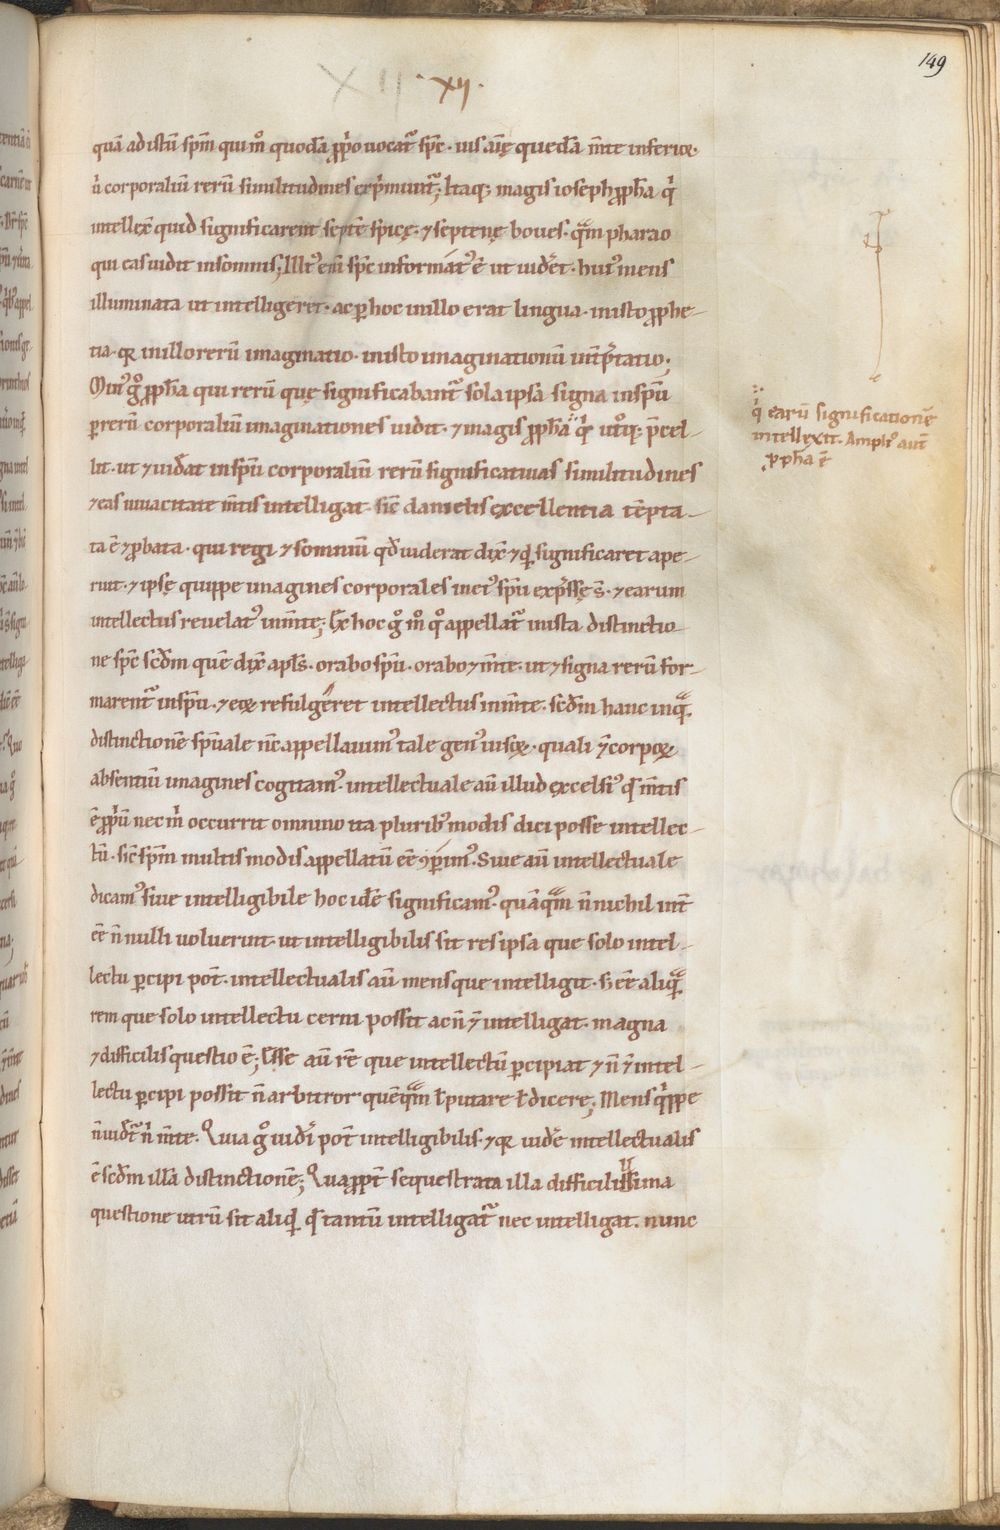 149
XII · XII ·
quā ad istū spm̄ qui m̊ quodā p̱p̱o uocat᷑ spc̄ · uis aīę quedā m̄te inferior ·
n̄ corporaliū rerū similitudines exp̄munt᷑; Itaq; magis ioseph p̱p̱ha qͥ
intellex̄ quid significarent septē spicę · ⁊ septenę boues · qᷓm pharao
qui eas uidit in somnis; Illiꝰ eni᷑ spc̄ informatꝰ ē ut uid̄et · huiꝰ mens
illuminata ut intelligeret · ac ꝑ hoc in illo erat lingua · in isto ꝓphe-
tia · qr̄ in illo rerū imaginatio · in isto imaginationū int̄p̄tatio;
Minꝰ g̊ ꝓpha qui rerū quę significabant᷑ sola ipsa signa in spū
ꝑ rerū corporaliū imaginationes uidit · ⁊ magis ꝓpha ∵ qͥ utͦq; p̄cel-
lit · ut ⁊ uideat in spū corporaliū rerū significatiuas similitudines
⁊ eas uiuacitate m̄tis intelligat · sic̄ danielis excellentia tēpta-
ta ē ⁊ ꝓbata · qui regi ⁊ somniū qd̄ uiderat dix̄ ⁊ qͥd significaret ape-
ruit · ⁊ ipsę quippe imagines corporales in eiꝰ spū exp̄ssę s̄ · ⁊ earum
intellectus reuelatꝰ in m̄te; Ex hoc g̊ m̊ q̊ appellat᷑ in ista distinctio-
ne spc̄ scd̄m quē dix̄ apl̄s · orabo spū · orabo ⁊ m̄te · ut ⁊ signa rerū for-
marent᷑ in spū · ⁊ eoꝝ refulgeret intellectus in m̄te · scd̄m hanc inqᷓ
distinctionē spūale nc̄ appellauimꝰ tale genꝰ uisoꝝ · quali ⁊ corpoꝝ
absentiū imagines cogitamꝰ · intellectuale aū illud excelsiꝰ qd̄ m̄tis
ē ꝓpͥū nec m̄ occurrit omnino ita pluribꝰ modis dici posse intellec-
tū · sic̄ spm̄ multis modis appellatū ēē ꝯꝑimꝰ · Siue aū intellectuale
dicamꝰ siue intelligibile hoc idē significamꝰ · quāqᷓm n̄ nichil int̄
ēē n̄ nulli uoluerint · ut intelligibilis sit res ipsa que solo intel-
lectu ꝑcipi pot̄ · intellectualis aū mens que intelligit · s; ēē aliqᷓ
rem que solo intellectu cerni possit ac n̄ ⁊ intelligat · magna
⁊ difficilis questio ē; Esse aū rē que intellectū ꝑcipiat ⁊ n̄ ⁊ intel-
lectu ꝑcipi possit n̄ arbitror quēqᷓm ł putare ł dicere; Mens qͥppe
n̄ uidet᷑ n̄ m̄te · Quia g̊ uidi᷑ pot̄ intelligibilis · ⁊ qr̄ uidē intellectualis
ē scd̄m illā distinctionē; Quapp̄t sequestrata illa difficilissima
questione utrū sit aliqͥd qd̄ tantū intelligat᷑ nec intelligat · nunc
∵ qͥ earū significationē
intellexit · Ampliꝰ aut̄
ꝓpha ē